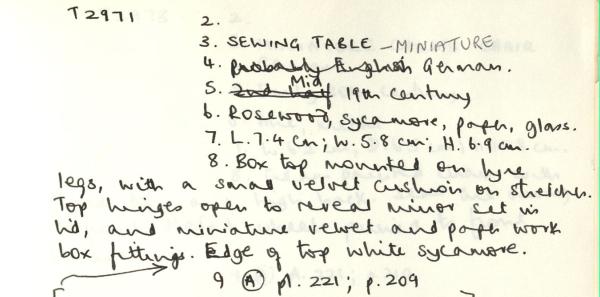 T2971 2.
3. SEWING TABLE - MINIATURE
4. probably English German.
5. 2nd half Mid 19th century
6. Rosewood, sycamore, paper, glass.
7. L. 7.4 cm; W. 5.8 cm; H. 6.9 cm.
8. Box top mounted on lyre
legs, with a small velvet cushion on stretcher.
Top hinges open to reveal mirror set in
lid, and miniature velvet and paper work
box fittings. Edge of top white sycamore.
9 (A) pl. 221; p. 209